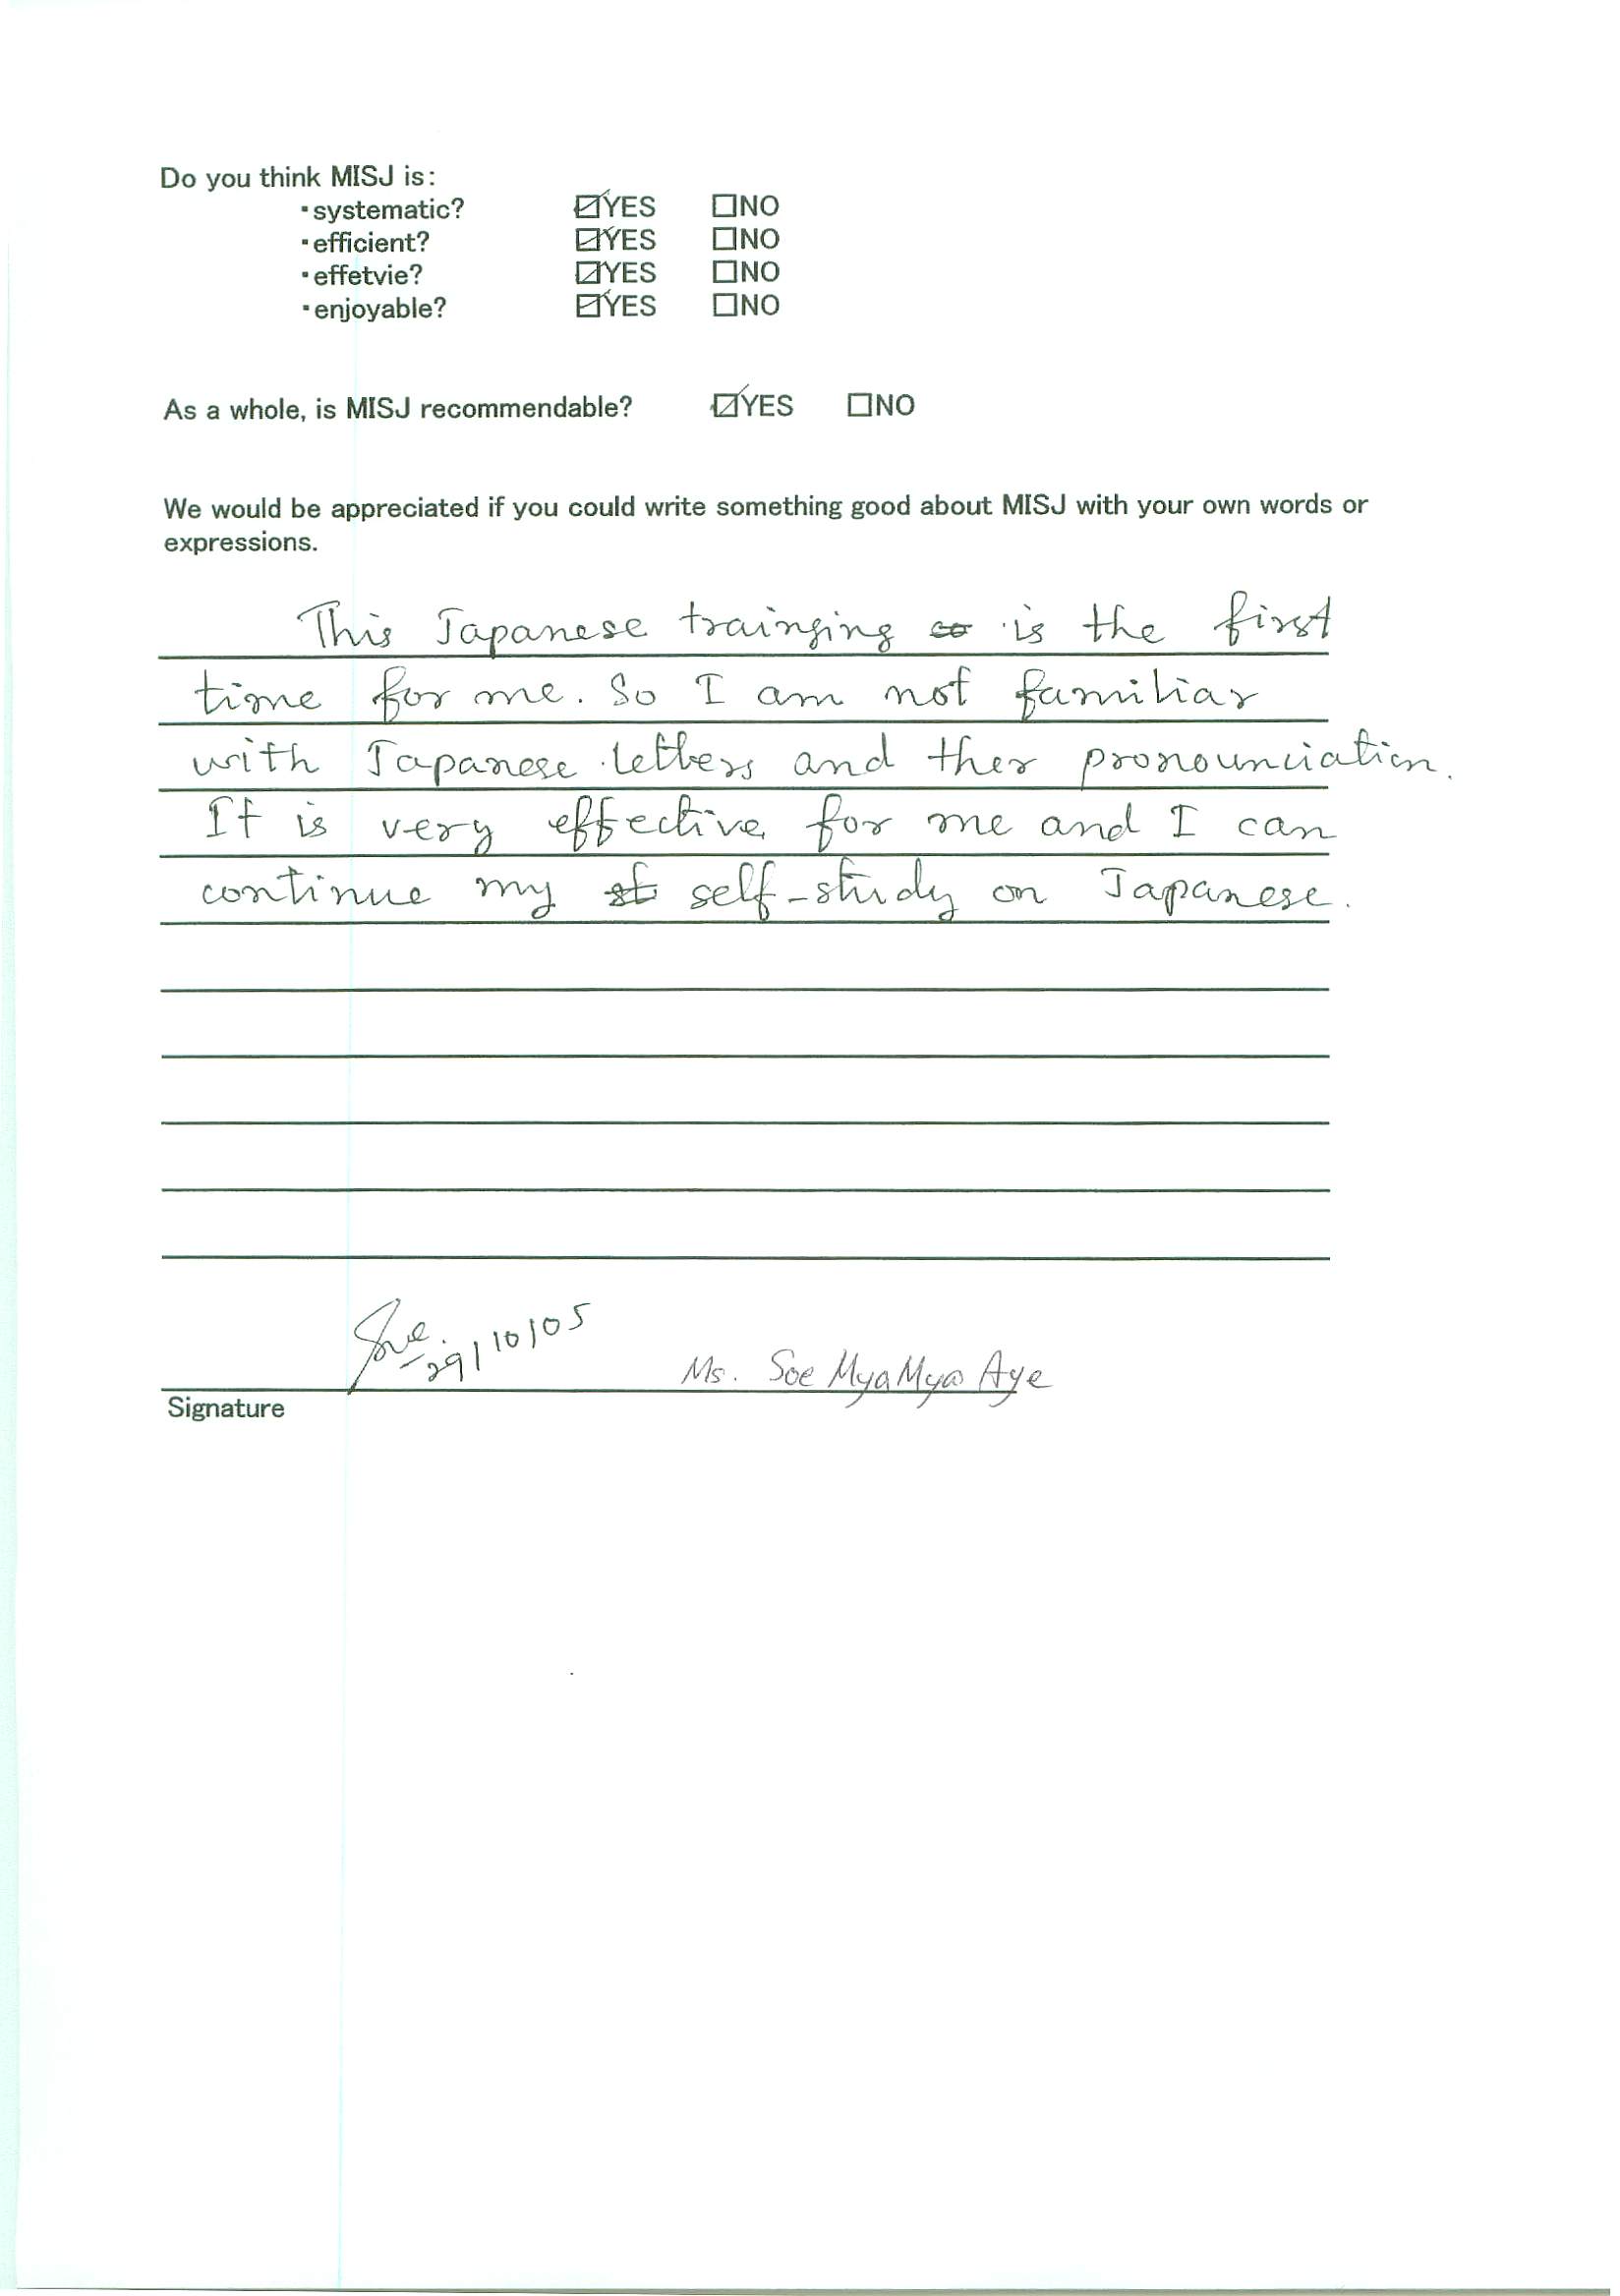 Do you think MISJ is:
・systematic? ☑YES ☐NO
・efficient? ☑YES ☐NO
・effetvie? ☑YES ☐NO
・enjoyable? ☑YES ☐NO
As a whole, is MISJ recommendable? ☑YES ☐NO
We would be appreciated if you could write something good about MISJ with your own words or
expressions.
This Japanese trainging is the first
time for me. So I am not familiar
with Japanese letters and ther pronounciation.
It is very effective for me and I can
continue my st self-study on Japanese.
29/10/05
Ms. Soe Mya Mya Aye
Signature